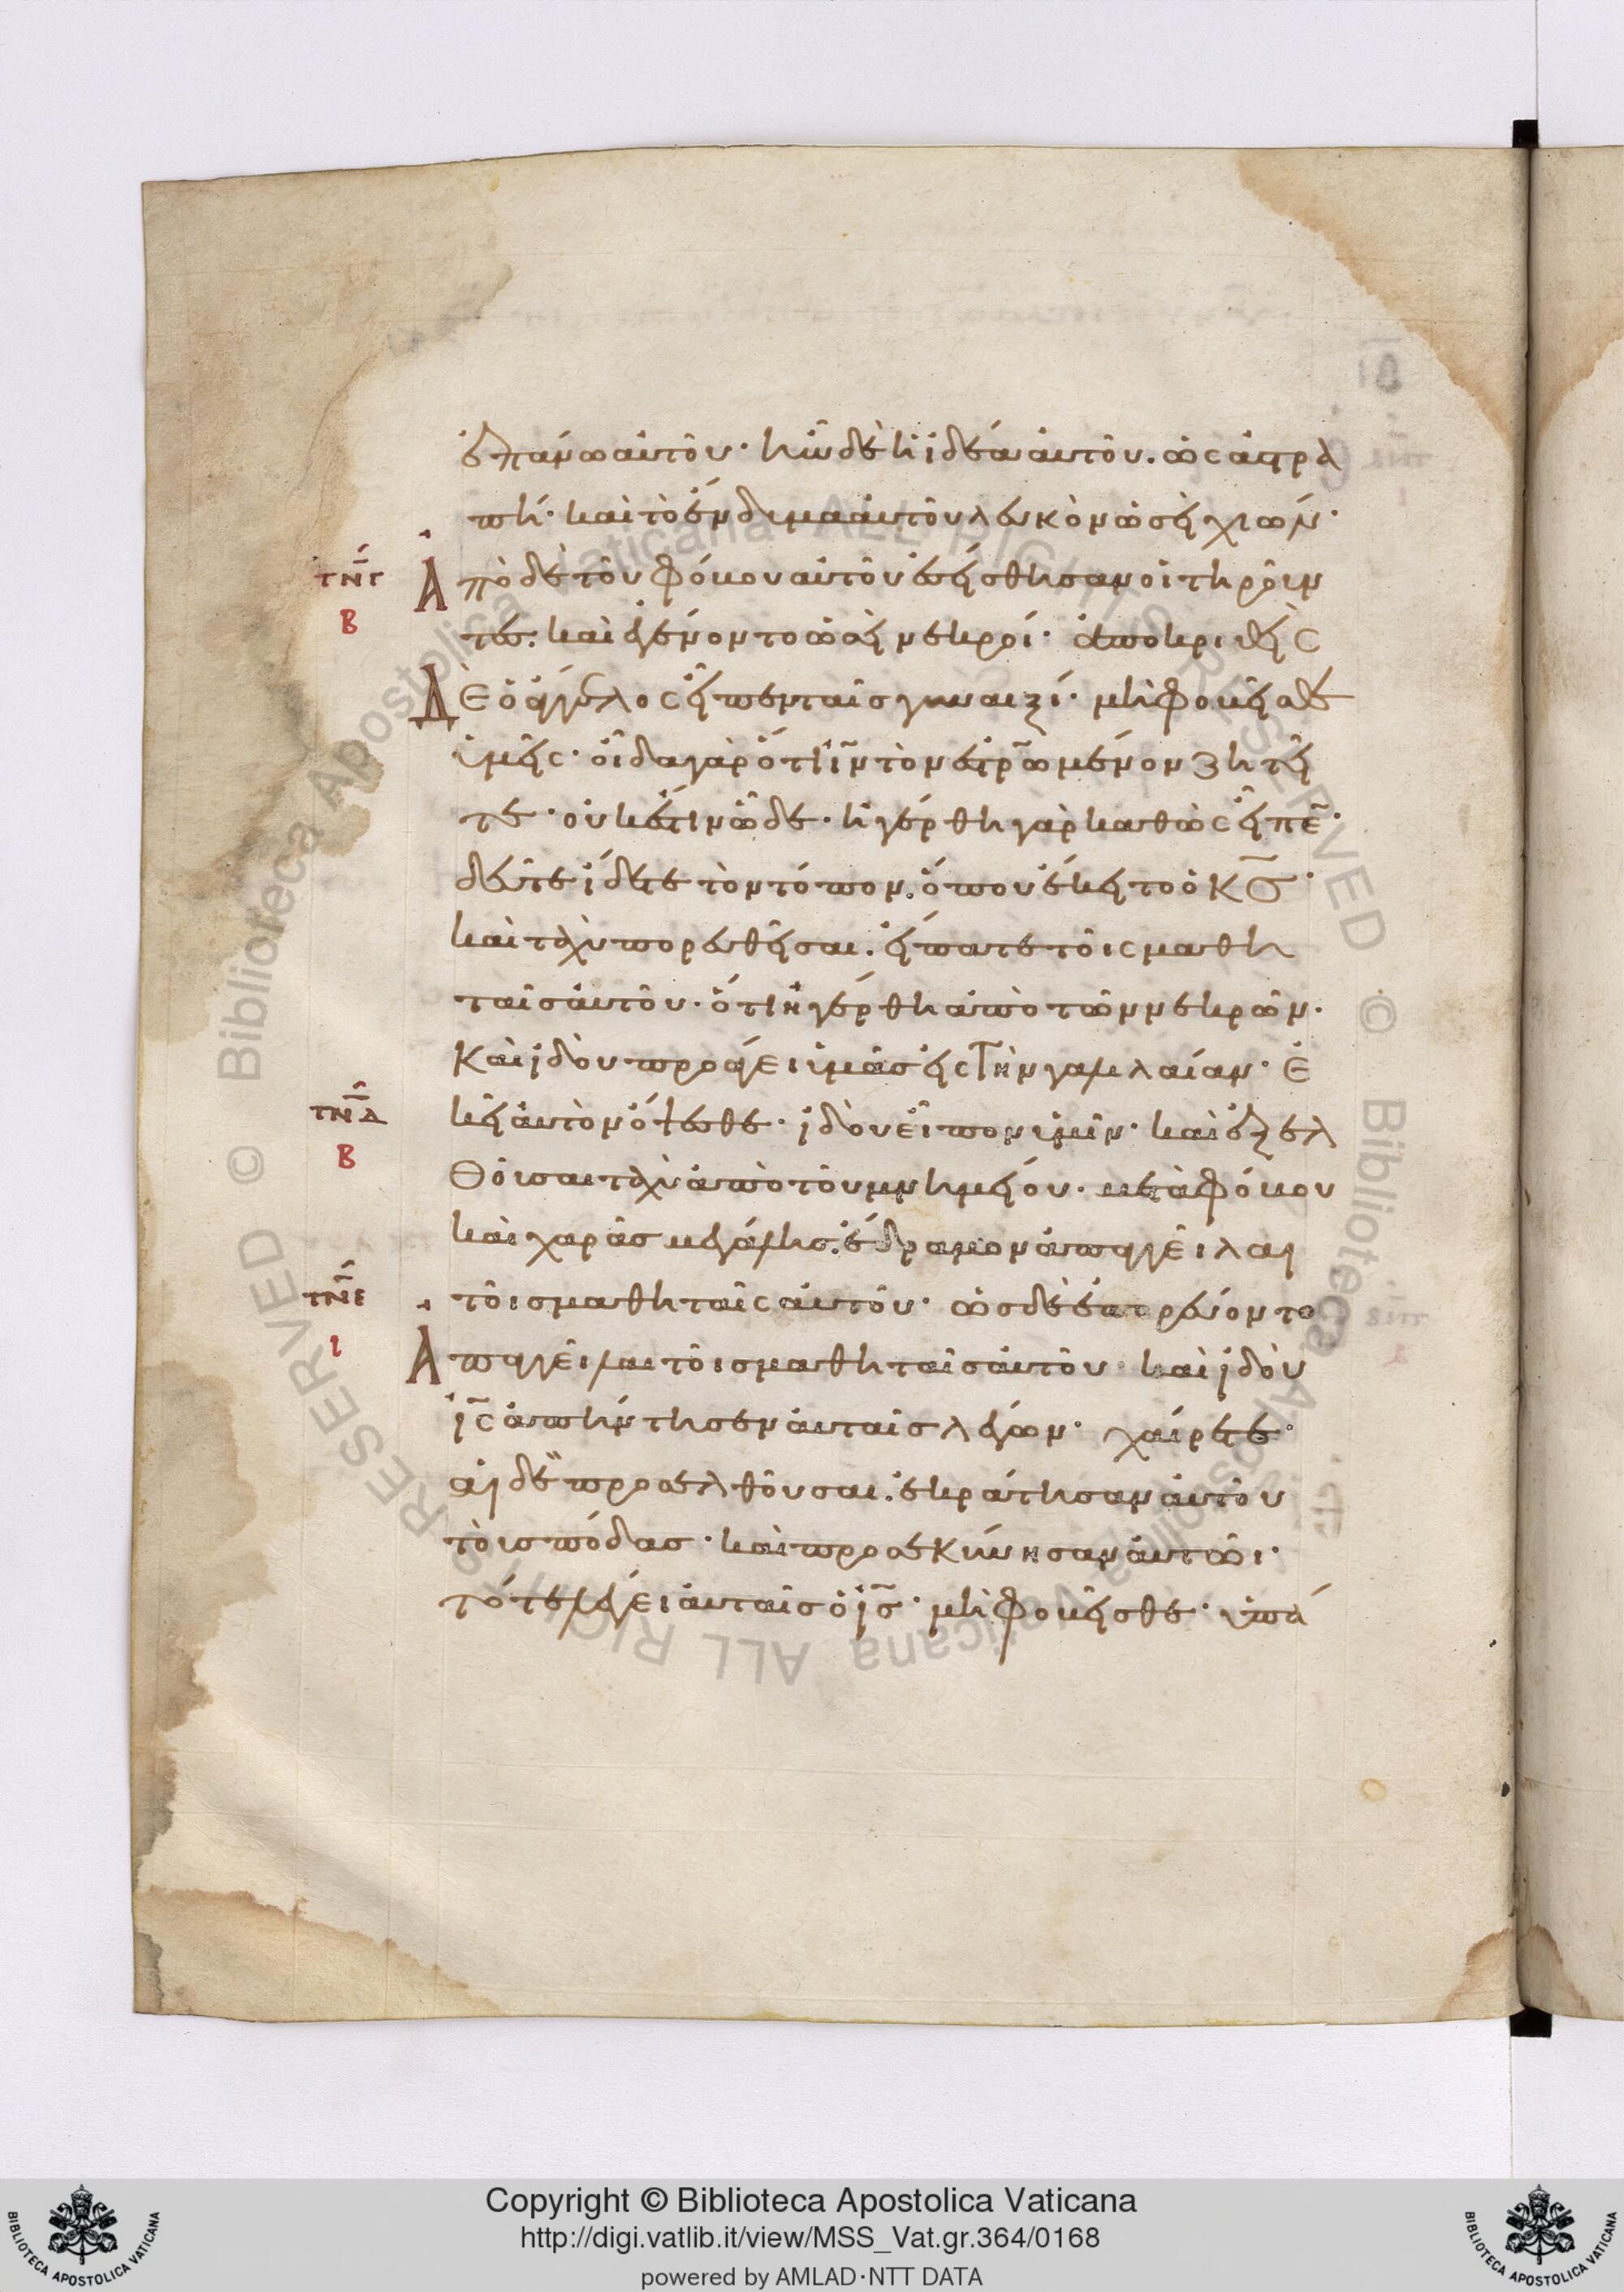 ἐπάνω αὐτοῦ· ἦν δὲ ἡ ἰδέα αὐτοῦ. ὡς ἀστρα
πή· καὶ τὸ ἔνδυμα αὐτοῦ λευκὸν ὡσεὶ χιών·
τνγ Ἀπὸ δὲ τοῦ φόβου αὐτοῦ ἐσείσθησαν οἱ τηροῦν
Β τες. καὶ ἐγένοντο ὡσεὶ νεκροί· ἀποκριθεὶς
Δὲ ὁ ἄγγελος εἶπεν ταῖς γυναιξί· μὴ φοβεῖσθε
ὑμεῖς· οἶδα γὰρ ὅτι ἰν τὸν ἐστρωμένον ζητεῖ
τε· οὐκ ἔστιν ὧδε· ἠγέρθη γὰρ καθὼς εἶπε·
δεῦτε ἴδετε τὸν τόπον. ὅπου ἔκειτο ὁ κς·
καὶ ταχὺ πορευθεῖσαι. εἴπατε τοῖς μαθη
ταῖς αὐτοῦ· ὅτι ἠγέρθη ἀπὸ τῶν νεκρῶν·
Καὶ ἰδοὺ προάγει ὑμᾶς εἰς τὴν γαλιλαίαν· ἐ
τνδ κεῖ αὐτὸν ὄψεσθε· ἰδοὺ εἶπον ὑμῖν· καὶ ἐξελ
Β θοῦσαι ταχὺ ἀπὸ τοῦ μνημείου· μετὰ φόβου
καὶ χαρᾶς μεγάλης. ἔδραμον ἀπαγγεῖλαι
τνε τοῖς μαθηταῖς αὐτοῦ· ὡς δὲ ἐπορεύοντο
ι Ἀπαγγεῖλαι τοῖς μαθηταῖς αὐτοῦ· καὶ ἰδοὺ
ις ἀπήντησεν αὐταῖς λέγων· χαίρετε·
αἱ δὲ προσελθοῦσαι. ἐκράτησαν αὐτοῦ
τοὺς πόδας· καὶ προσεκύνησαν αὐτῶι·
τότε λέγει αὐταῖς ὁ ις· μὴ φοβεῖσθε· ὑπά
Copyright © Biblioteca Apostolica Vaticana
http://digi.vatlib.it/view/MSS_Vat.gr.364/0168
powered by AMLAD·NTT DATA
BIBLIOTECA APOSTOLICA VATICANA
BIBLIOTECA APOSTOLICA VATICANA